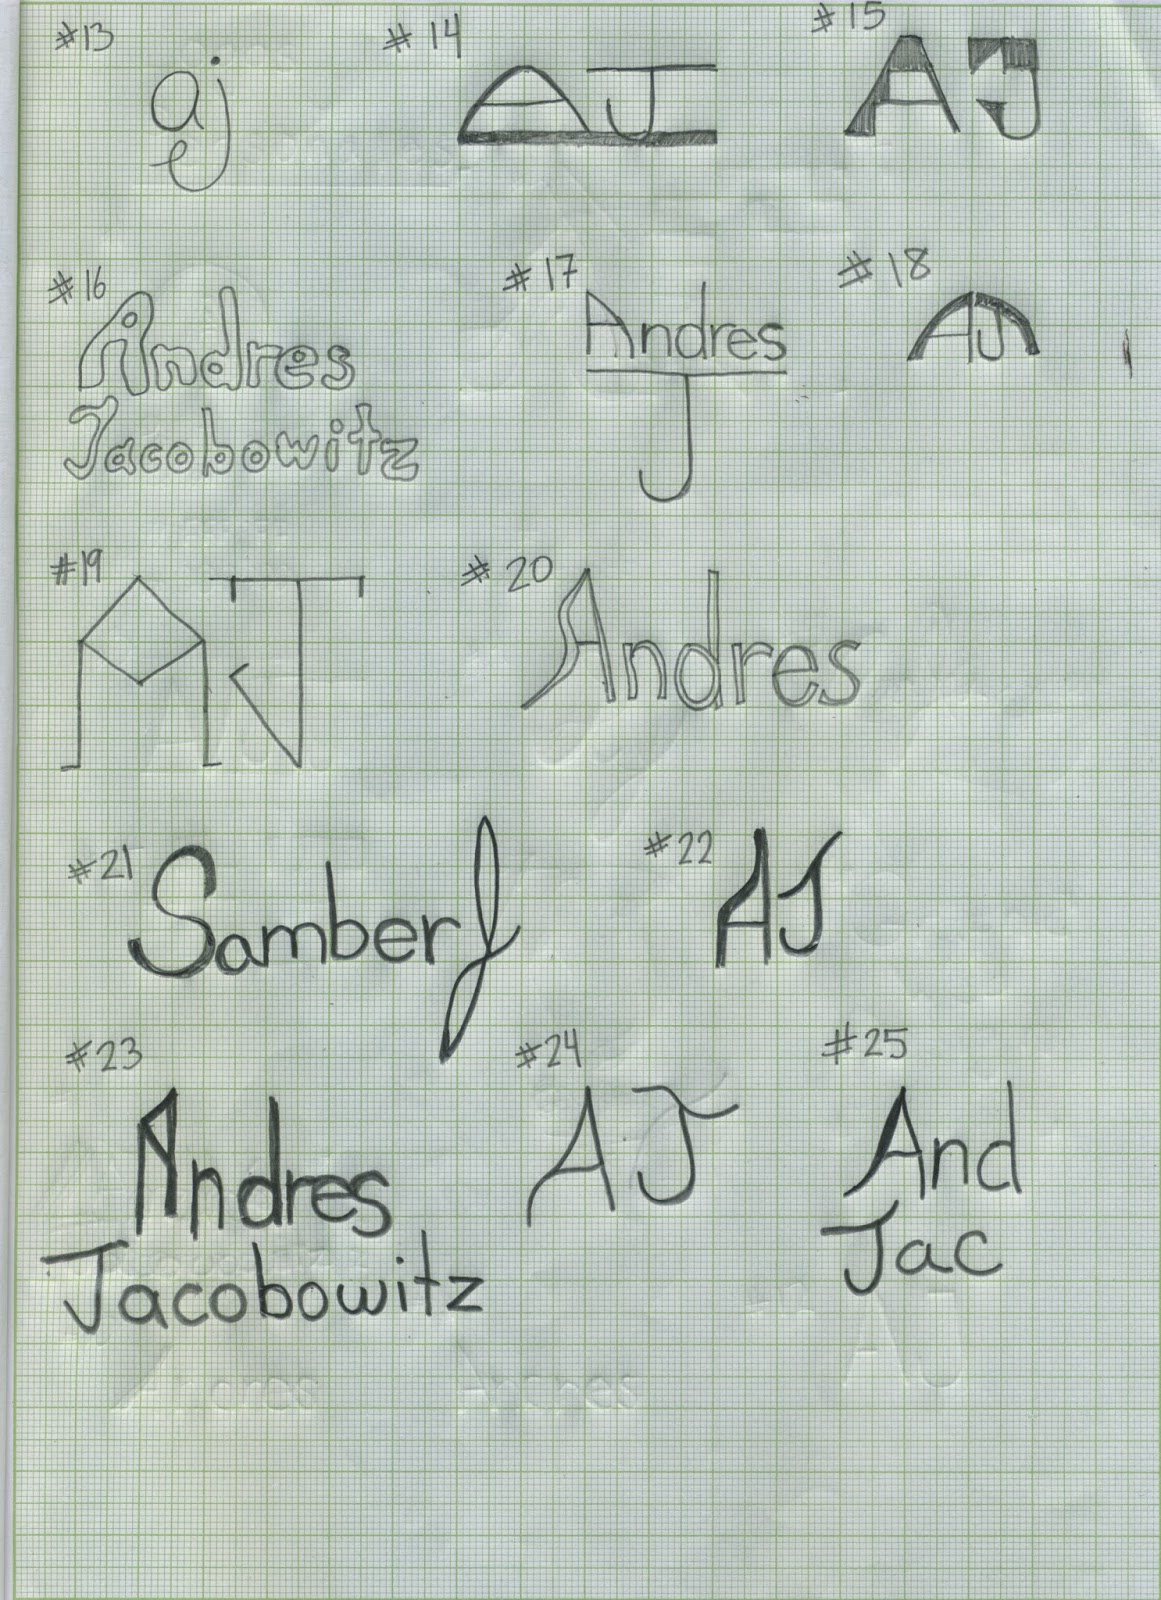 #13
aj
#14
AJ
#15
AJ
#16
Andres
Jacobowitz
#17
Andres
J
#18
AJ
#19
AJ
#20
Andres
#21
Samber J
#22
AJ
#23
Andres
Jacobowitz
#24
AJ
#25
And
Jac